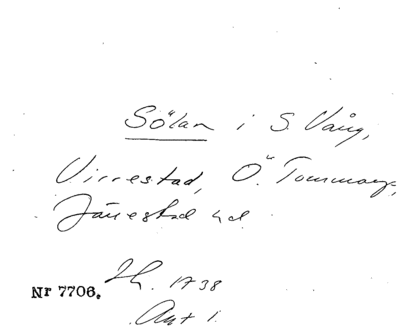 Sölan i S. Vång,
Virrestad, Ö. Tommarp,
Järrestad hd.
Nr 7706. Lh. 1738
Ant 1.